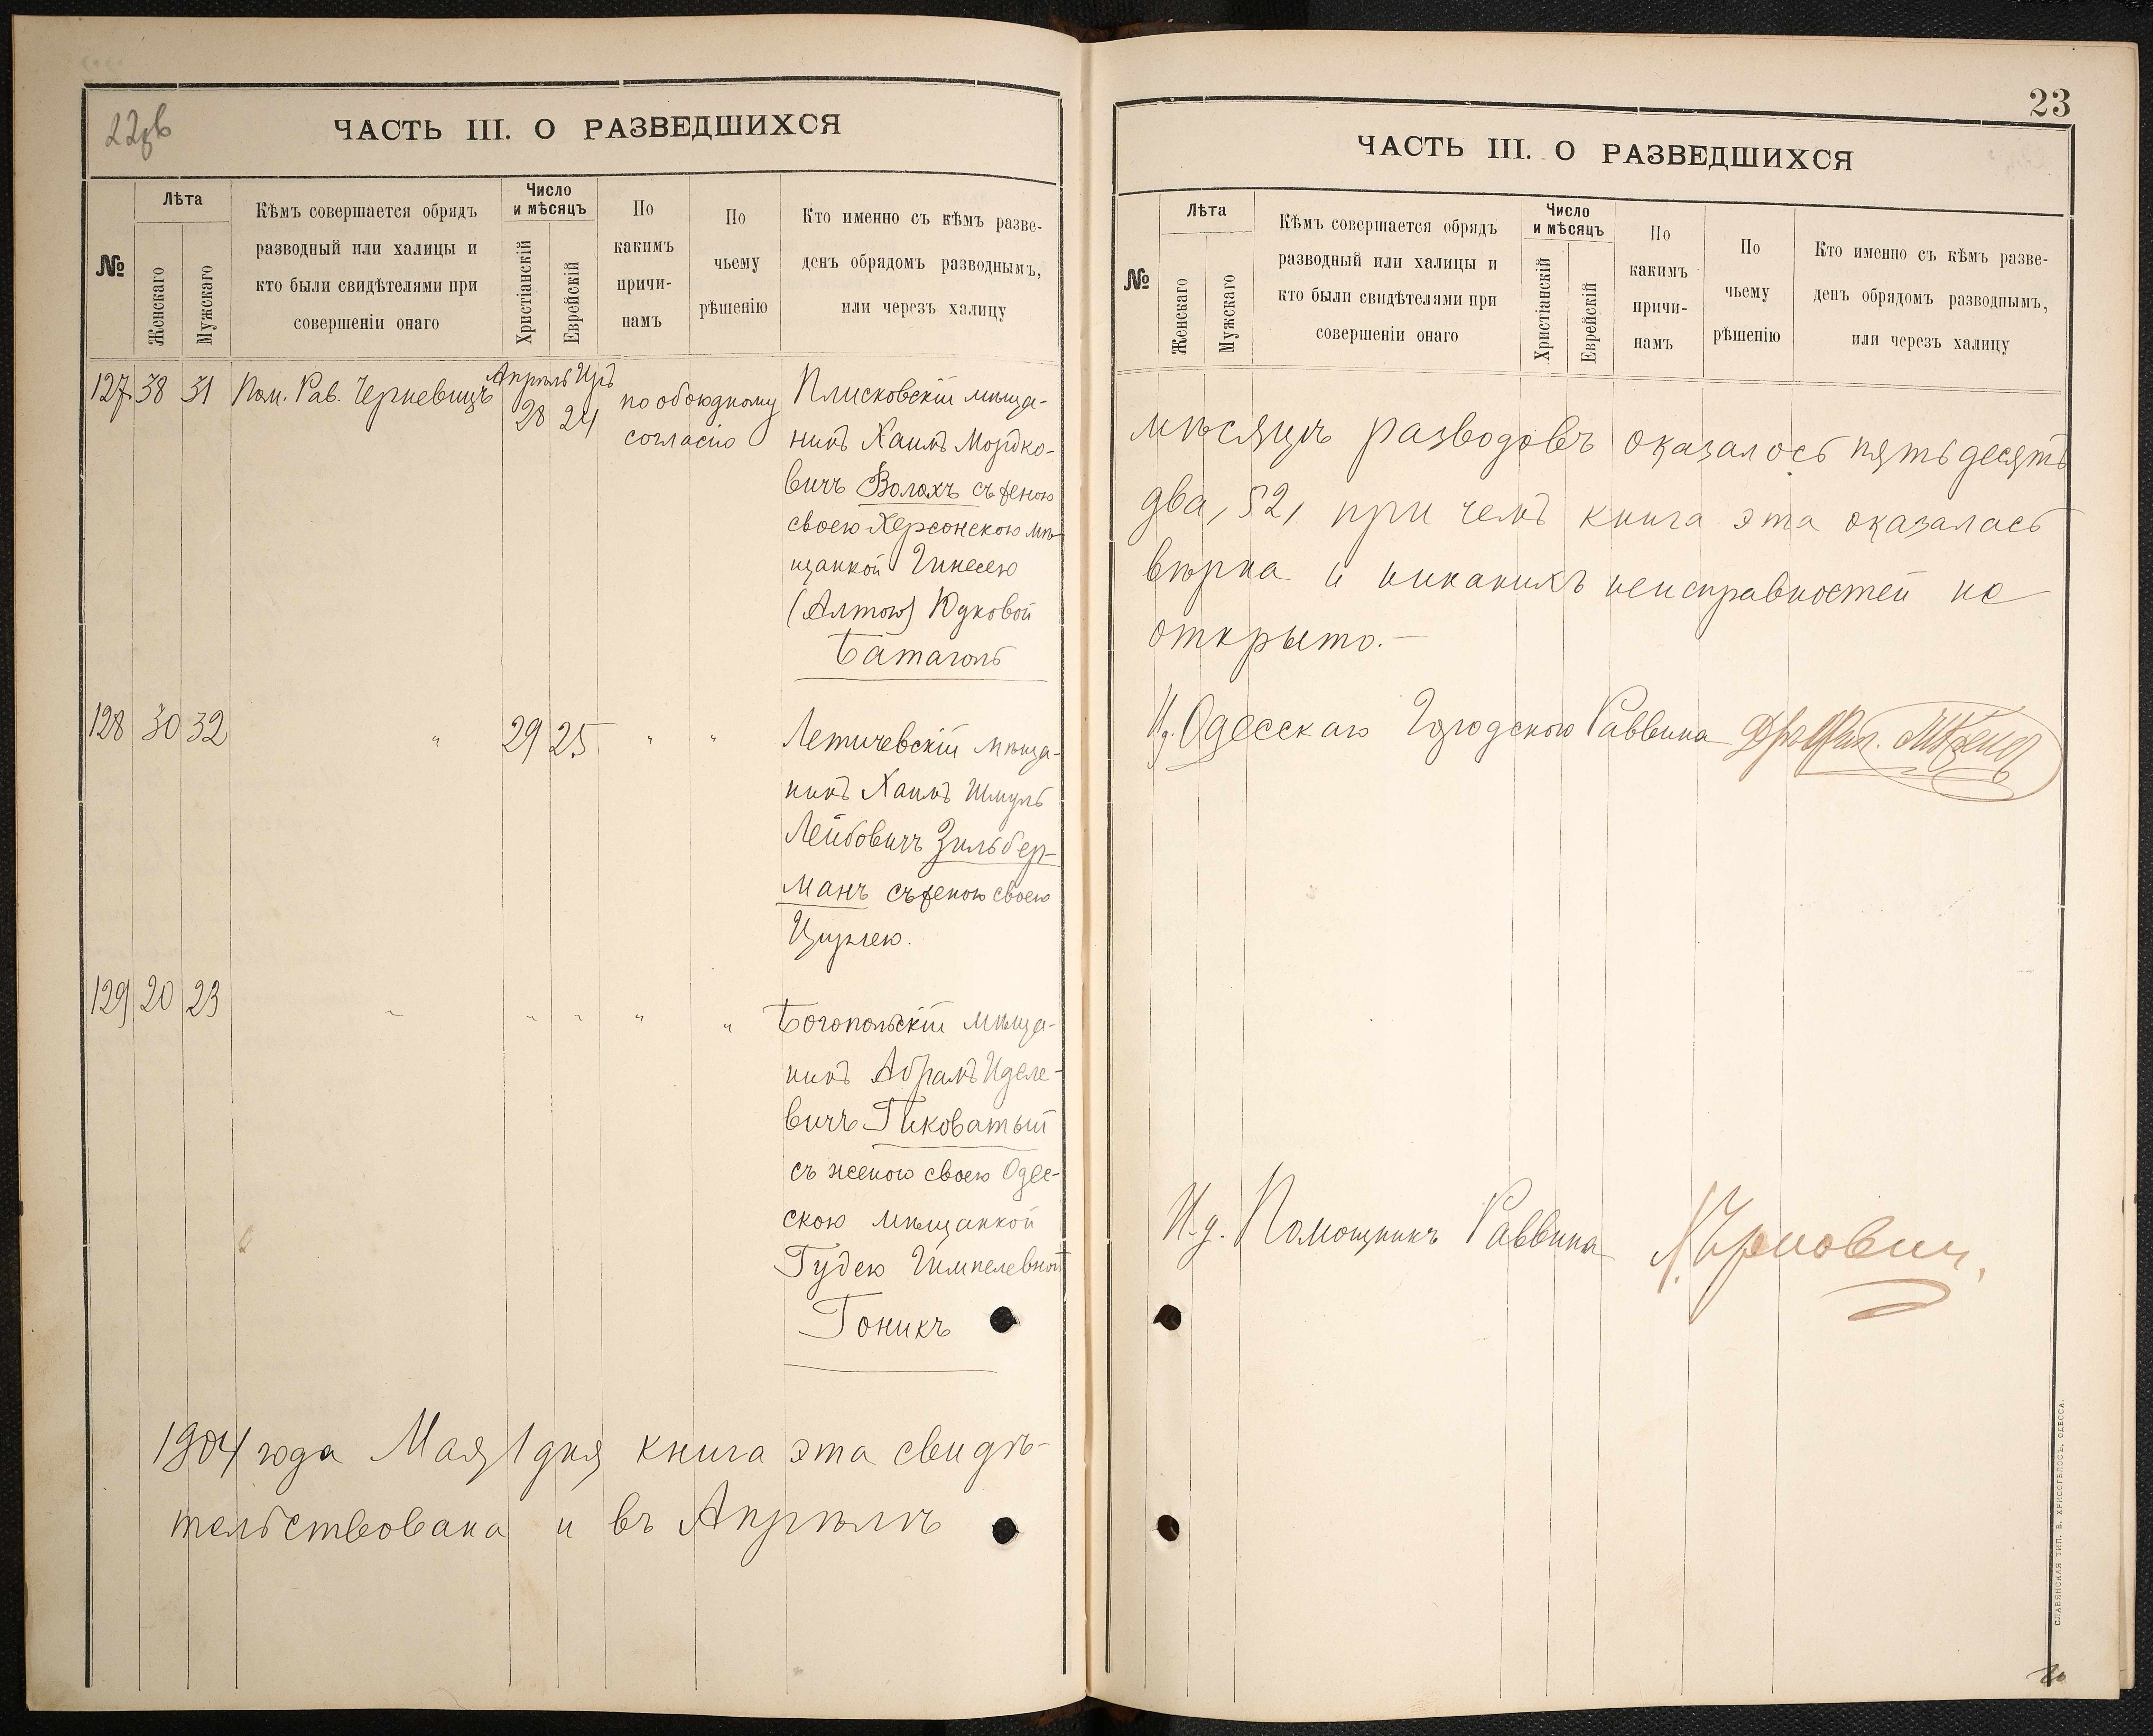 22об
ЧАСТЬ III. О РАЗВЕДШИХСЯ
№
Лѣта
Женскаго
Мужскаго
Кѣмъ совершается обрядъ
разводный или халицы и
кто были свидѣтелями при
совершеніи онаго
Число
и мѣсяцъ
Христіанскій
Еврейскій
По
какимъ
причи-
намъ
По
чьему
рѣшенію
Кто именно съ кѣмъ разве-
денъ обрядомъ разводнымъ,
или черезъ халицу
127 38 31 Пом. Рав. Черневицъ
Апрѣль Иръ
28 24
по обоюдному
согласію
Плисковскій мѣща-
нинъ Хаимъ Мордко-
вичъ Волохъ съ женою
своею Херсонскою мѣ-
щанкой Гинесею
(Алтою) Юдковой
Батаголь
128 30 32 " 29 25 " "
Летичевскій мѣща-
нинъ Хаимъ Шмуль
Лейбовичъ Зильбер-
манъ съ женою своею
Цирлею.
129 20 23 " " " " "
Богопольскій мѣща-
нинъ Абрамъ Иделе-
вичъ Гиковатый
съ женою своею Одес-
скою мѣщанкой
Гудею Гимпелевной
Гоникъ
1904 года Мая 1 дня книга эта свидѣ-
тельствована и въ Апрѣлѣ
23
ЧАСТЬ III. О РАЗВЕДШИХСЯ
№
Лѣта
Женскаго
Мужскаго
Кѣмъ совершается обрядъ
разводный или халицы и
кто были свидѣтелями при
совершеніи онаго
Число
и мѣсяцъ
Христіанскій
Еврейскій
По
какимъ
причи-
намъ
По
чьему
рѣшенію
Кто именно съ кѣмъ разве-
денъ обрядомъ разводнымъ,
или черезъ халицу
мѣсяцѣ разводовъ оказалось пятьдесятъ
два, 52, при чемъ книга эта оказалась
вѣрна и никакихъ неисправностей не
открыто.—
И.д. Одесскаго Городского Раввина
И.д. Помощникъ Раввина
СЛАВЯНСКАЯ ТИП. Е. ХРИСОГЕЛОСЪ, ОДЕССА.